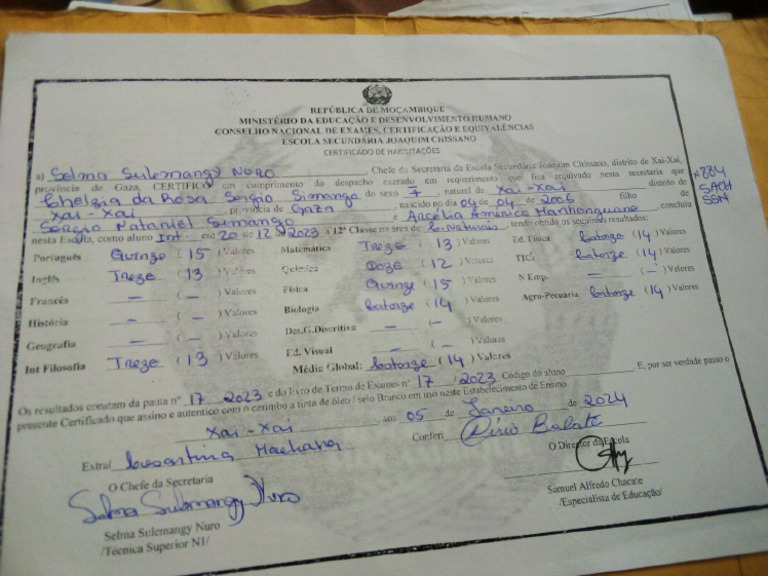 REPÚBLICA DE MOÇAMBIQUE
MINISTÉRIO DA EDUCAÇÃO E DESENVOLVIMENTO HUMANO
CONSELHO NACIONAL DE EXAMES, CERTIFICAÇÃO E EQUIVALÊNCIAS
ESCOLA SECUNDÁRIA JOAQUIM CHISSANO
CERTIFICADO DE HABILITAÇÕES
a) Selma Sulemangy Nuro Chefe da Secretaria da Escola Secundária Joaquim Chissano, distrito de Xai-Xai,
província de Gaza, CERTIFICO em cumprimento do despacho exarado em requerimento que fica arquivado nesta secretaria que
Chelzia da Rosa Sergio Simango do sexo F, natural de Xai-Xai distrito de
Xai-Xai, província de Gaza, nascido no dia 04 de 04 de 2005 filho de
Sérgio Nataniel Simango e Arcélia Américo Manhonguane, concluiu
nesta Escola, como aluno Int. em 20 de 12 de 2023 a 12ª Classe na área de C. Naturais, tendo obtido os seguintes resultados:
Português Quinze (15) Valores Matemática Treze (13) Valores Ed. Física Catorze (14)
Inglês Treze (13) Valores Química Doze (12) Valores TICs Catorze (14)
Francês – (–) Valores Física Quinze (15) Valores N Emp. – (–) Valores
História – (–) Valores Biologia Catorze (14) Valores Agro-Pecuária Catorze (14) Valores
Geografia – (–) Valores Des.G.Discritiva – (–) Valores
Int Filosofia Treze (13) Valores Ed. Visual – (–) Valores
Média Global: Catorze (14) Valores
Os resultados constam da pauta nº 17 2023 e do livro de Termo de Exames nº 17 /2023 Código do aluno E, por ser verdade passo o
presente Certificado que assino e autentico com o carimbo a tinta de óleo / selo Branco em uso neste Estabelecimento de Ensino
Xai-Xai aos 05 de Janeiro de 2024
Extraí Conferi
O Chefe da Secretaria
O Director da Escola
Selma Sulemangy Nuro
Selma Sulemangy Nuro
/Técnica Superior N1/
Samuel Alfredo Chacate
/Especialista de Educação/